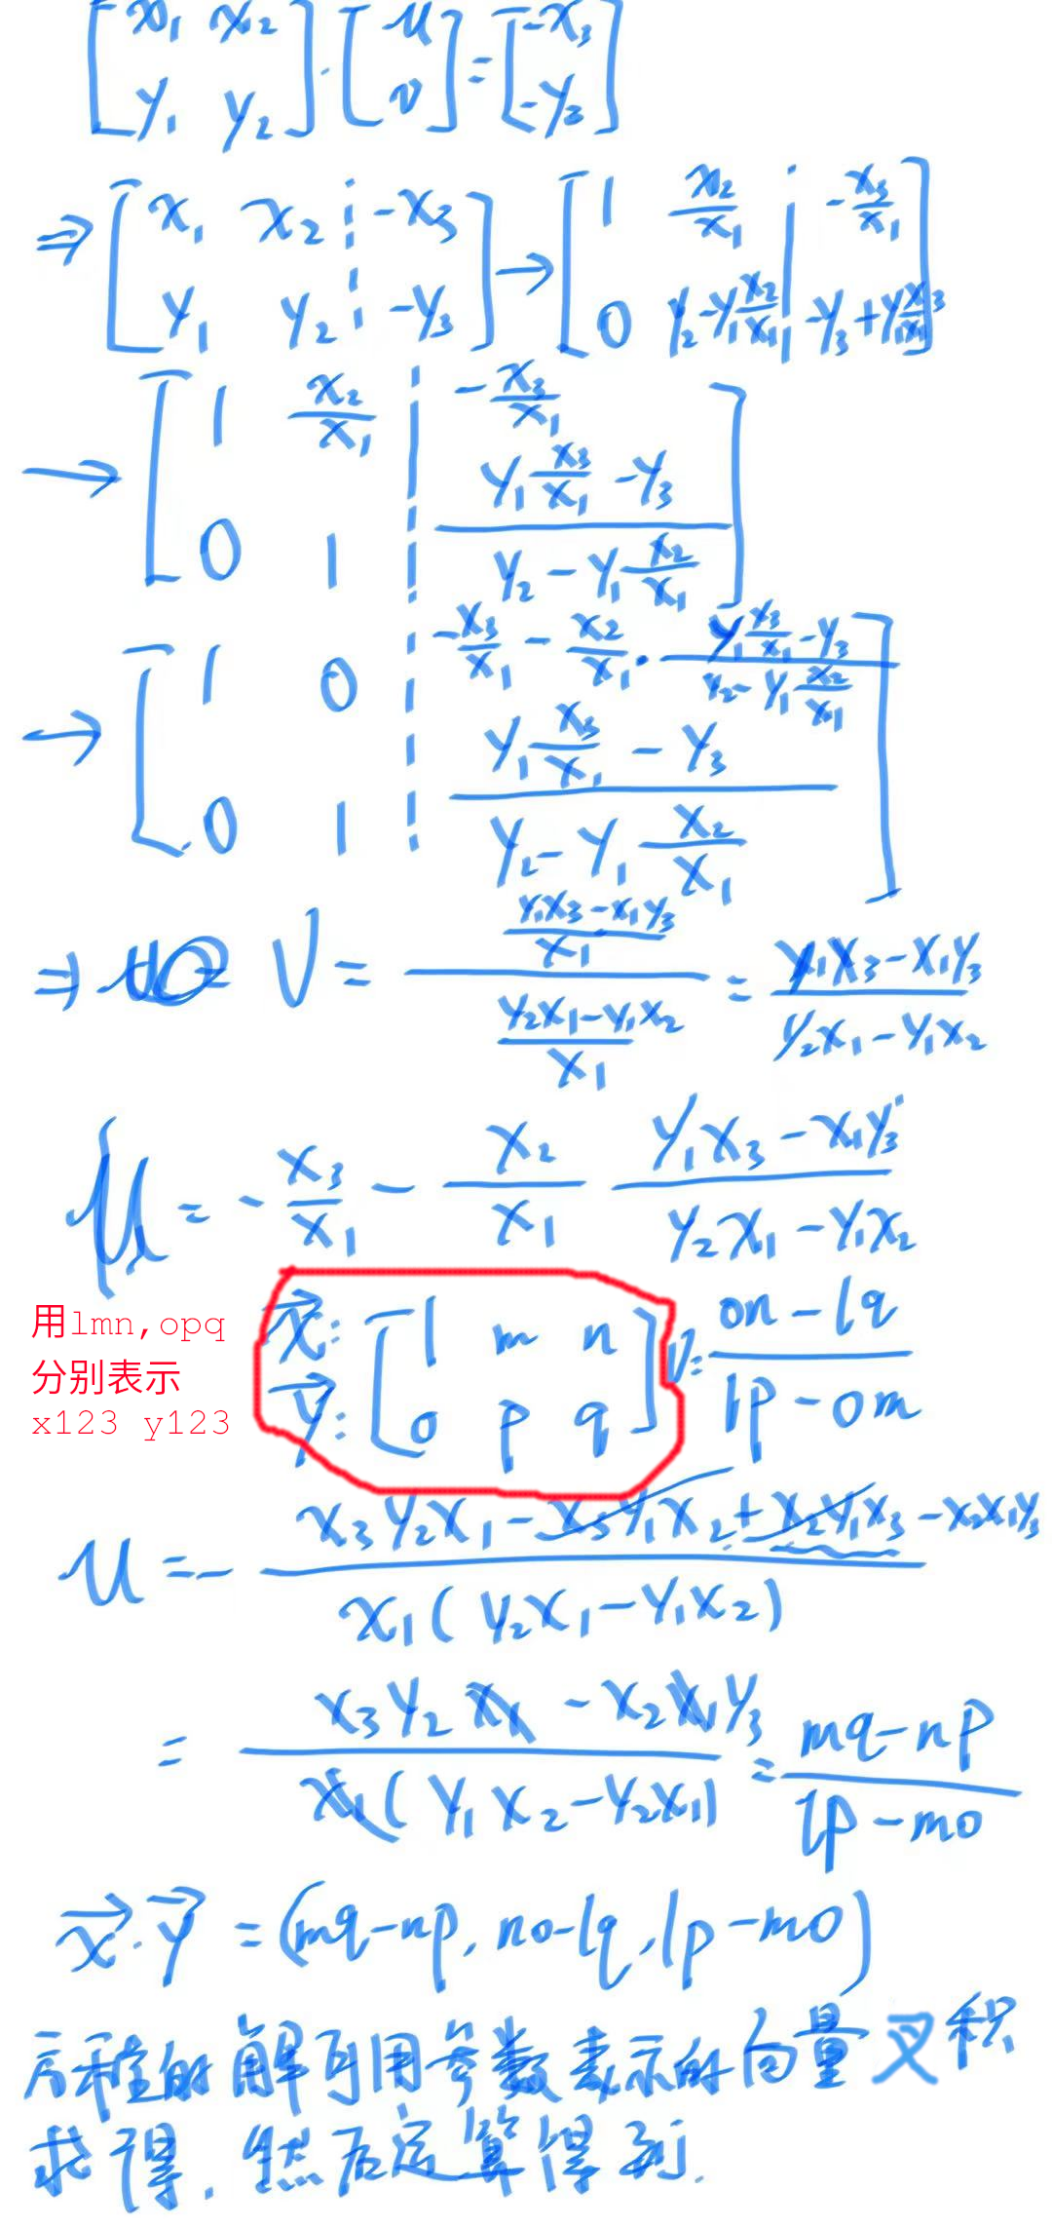 [x₁ x₂; y₁ y₂]·[u; v]=[-x₃; -y₃]
⇒[x₁ x₂ ⋮ -x₃; y₁ y₂ ⋮ -y₃]→[1 x₂/x₁ ⋮ -x₃/x₁; 0 y₂-y₁x₂/x₁ ⋮ -y₃+y₁x₃/x₁]
→[1 x₂/x₁ ⋮ -x₃/x₁; 0 1 ⋮ (y₁x₃/x₁-y₃)/(y₂-y₁x₂/x₁)]
→[1 0 ⋮ -x₃/x₁-x₂/x₁·(y₁x₃/x₁-y₃)/(y₂-y₁x₂/x₁); 0 1 ⋮ (y₁x₃/x₁-y₃)/(y₂-y₁x₂/x₁)]
⇒ V=((y₁x₃-x₁y₃)/x₁)/((y₂x₁-y₁x₂)/x₁)=(y₁x₃-x₁y₃)/(y₂x₁-y₁x₂)
u=-x₃/x₁-x₂/x₁ (y₁x₃-x₁y₃)/(y₂x₁-y₁x₂)
用lmn,opq
分别表示
x123 y123
x⃗: [l m n
y⃗: o p q] V=(on-lq)/(lp-om)
u=-(x₃y₂x₁-x₃y₁x₂+x₂y₁x₃-x₂x₁y₃)/(x₁(y₂x₁-y₁x₂))
=(x₃y₂x₁-x₂x₁y₃)/(x₁(y₁x₂-y₂x₁))=(mq-np)/(lp-mo)
x⃗·y⃗=(mq-np, no-lq, lp-mo)
方程的解可用参数表示的向量叉积
求得,然后运算得到.